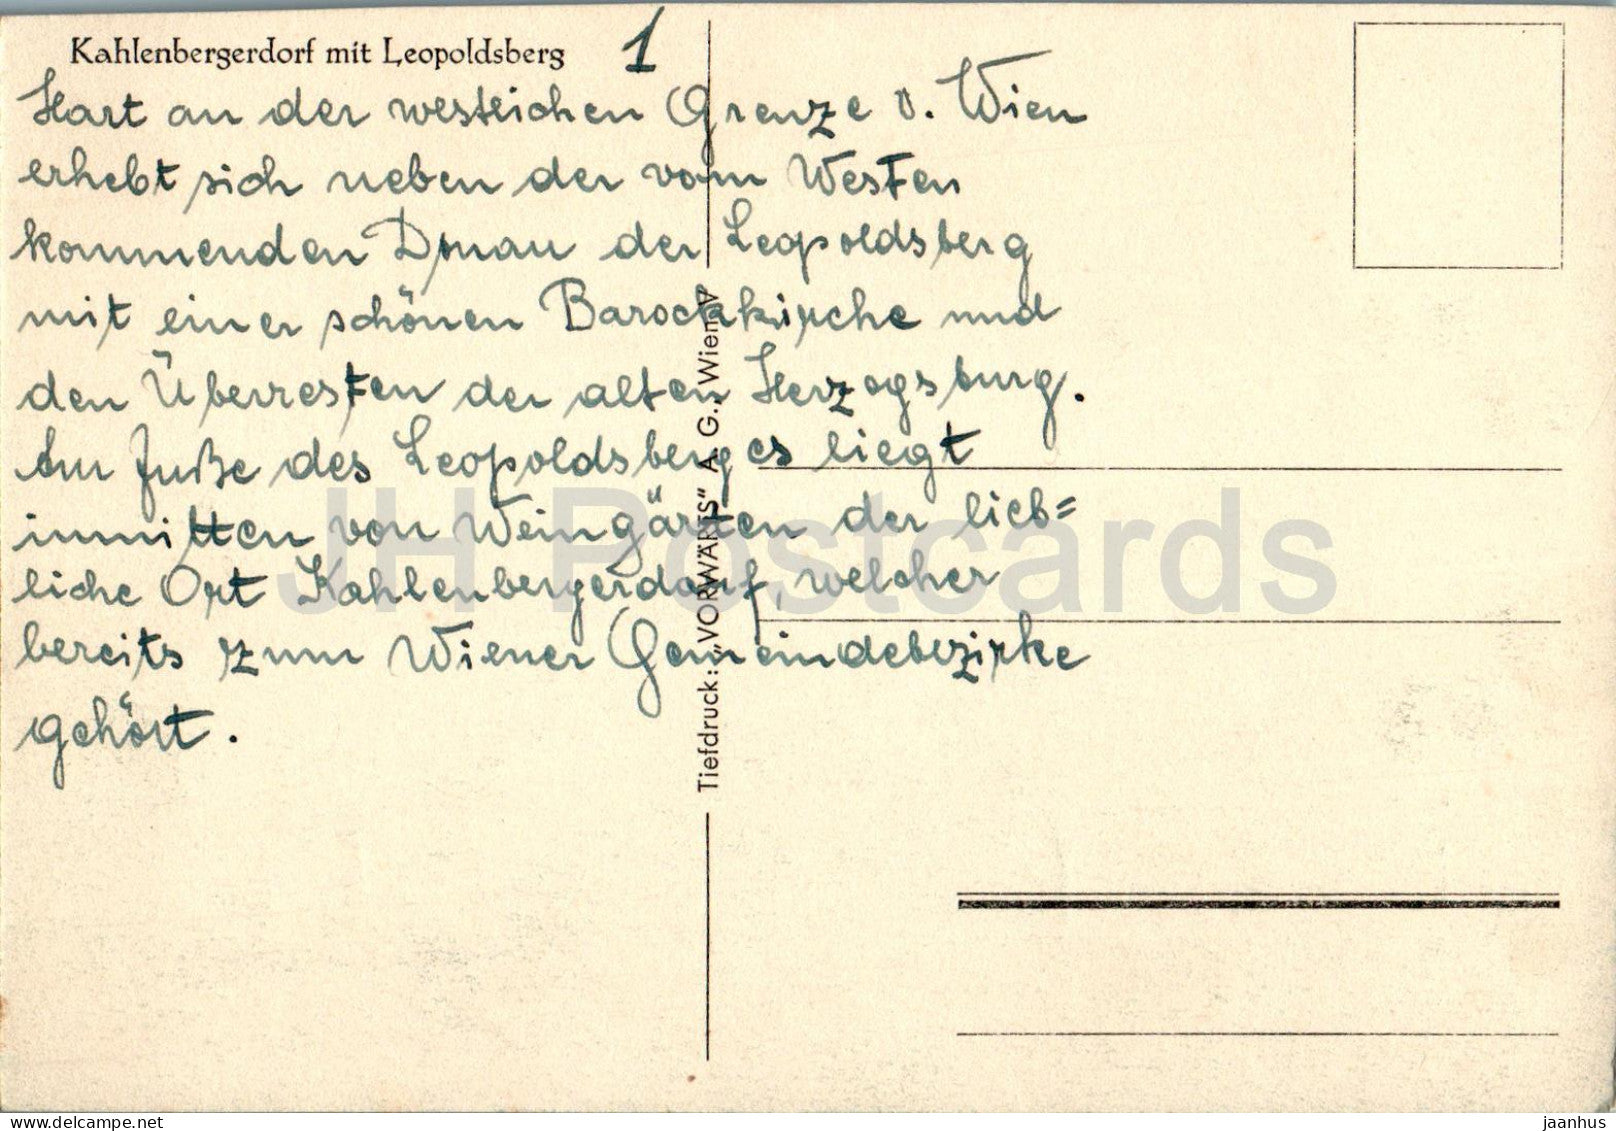 Kahlenbergerdorf mit Leopoldsberg
1
Hart an der westlichen Grenze v. Wien
erhebt sich neben der vom Westen
kommenden Donau der Leopoldsberg
mit einer schönen Barockkirche und
den Überresten der alten Herzogsburg.
Am Fuße des Leopoldsberges liegt
inmitten von Weingärten der lieb=
liche Ort Kahlenbergerdorf, welcher
bereits zum Wiener Gemeindebezirke
gehört.
Tiefdruck: „VORWÄRTS" A. G., Wien V
JH Postcards
www.delcampe.net
jaanhus